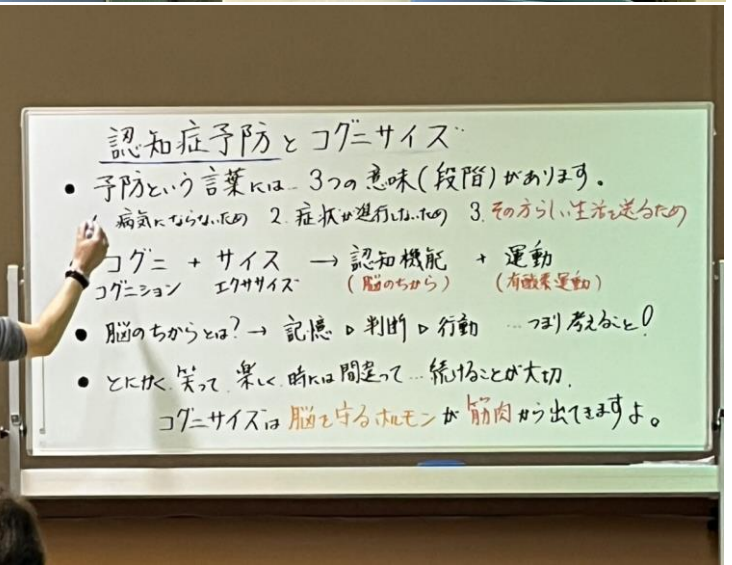 認知症予防とコグニサイズ
● 予防という言葉には 3つの意味(段階)があります。
病気にならないため 2. 症状が進行しないため 3. その方らしい生活を送るため
コグニ + サイズ → 認知機能 + 運動
コグニション エクササイズ (脳のちから) (有酸素運動)
● 脳のちからとは? → 記憶 ▷ 判断 ▷ 行動 … つまり考えること!
● とにかく、笑って、楽しく、時には間違って…続けることが大切、
コグニサイズは脳を守るホルモンが筋肉から出てきますよ。